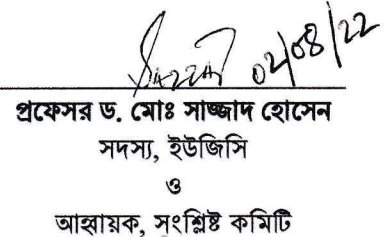 Sazzad 02/08/22
প্রফেসর ড. মোঃ সাজ্জাদ হোসেন
সদস্য, ইউজিসি
ও
আহ্বায়ক, সংশ্লিষ্ট কমিটি